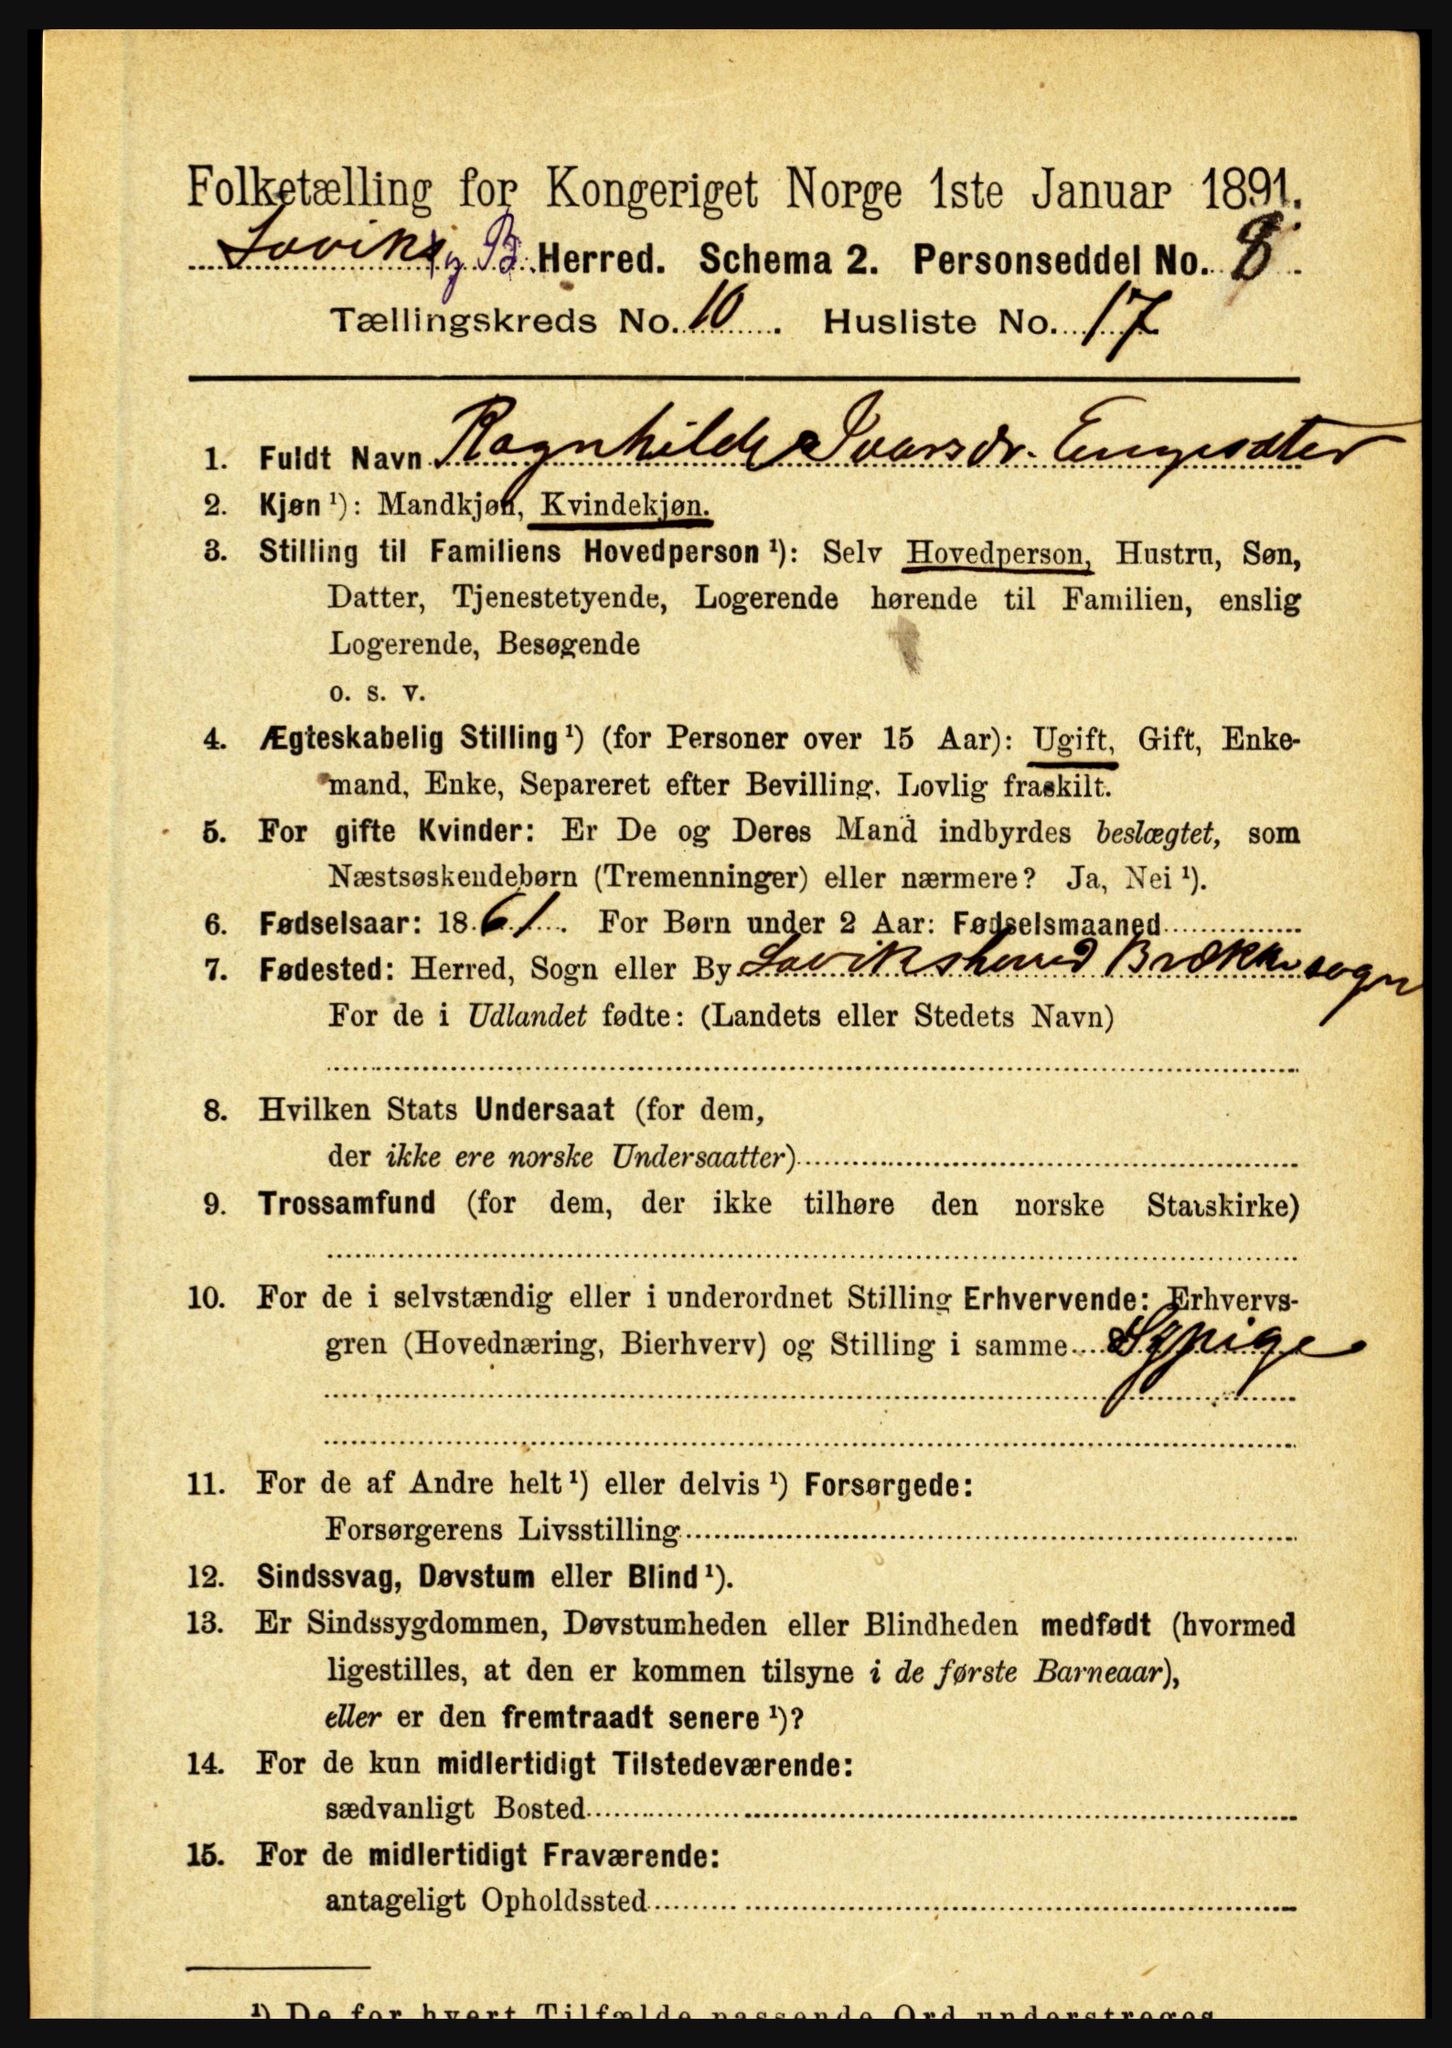 Folketælling for Kongeriget Norge 1ste Januar 1891.
Laviks og B. Herred. Schema 2. Personseddel No. 8.
Tællingskreds No. 10. Husliste No. 17
1. Fuldt Navn Ragnhilde Ivarsdr. Engesæter
2. Kjøn ¹): Mandkjøn, Kvindekjøn.
3. Stilling til Familiens Hovedperson ¹): Selv Hovedperson, Hustru, Søn,
Datter, Tjenestetyende, Logerende hørende til Familien, enslig
Logerende, Besøgende
o. s. v.
4. Ægteskabelig Stilling ¹) (for Personer over 15 Aar): Ugift, Gift, Enke-
mand, Enke, Separeret efter Bevilling. Lovlig fraskilt.
5. For gifte Kvinder: Er De og Deres Mand indbyrdes beslægtet, som
Næstsøskendebørn (Tremenninger) eller nærmere? Ja, Nei ¹).
6. Fødselsaar: 1861. For Børn under 2 Aar: Fødselsmaaned
7. Fødested: Herred, Sogn eller By Laviksherred Brækkesogn
For de i Udlandet fødte: (Landets eller Stedets Navn)
8. Hvilken Stats Undersaat (for dem,
der ikke ere norske Undersaatter)
9. Trossamfund (for dem, der ikke tilhøre den norske Statskirke)
10. For de i selvstændig eller i underordnet Stilling Erhvervende: Erhvervs-
gren (Hovednæring, Bierhverv) og Stilling i samme Sypige
11. For de af Andre helt ¹) eller delvis ¹) Forsørgede:
Forsørgerens Livsstilling
12. Sindssvag, Døvstum eller Blind ¹).
13. Er Sindssygdommen, Døvstumheden eller Blindheden medfødt (hvormed
ligestilles, at den er kommen tilsyne i de første Barneaar),
eller er den fremtraadt senere ¹)?
14. For de kun midlertidigt Tilstedeværende:
sædvanligt Bosted
15. For de midlertidigt Fraværende:
antageligt Opholdssted
¹) De for hvert Tilfælde passende Ord understreges